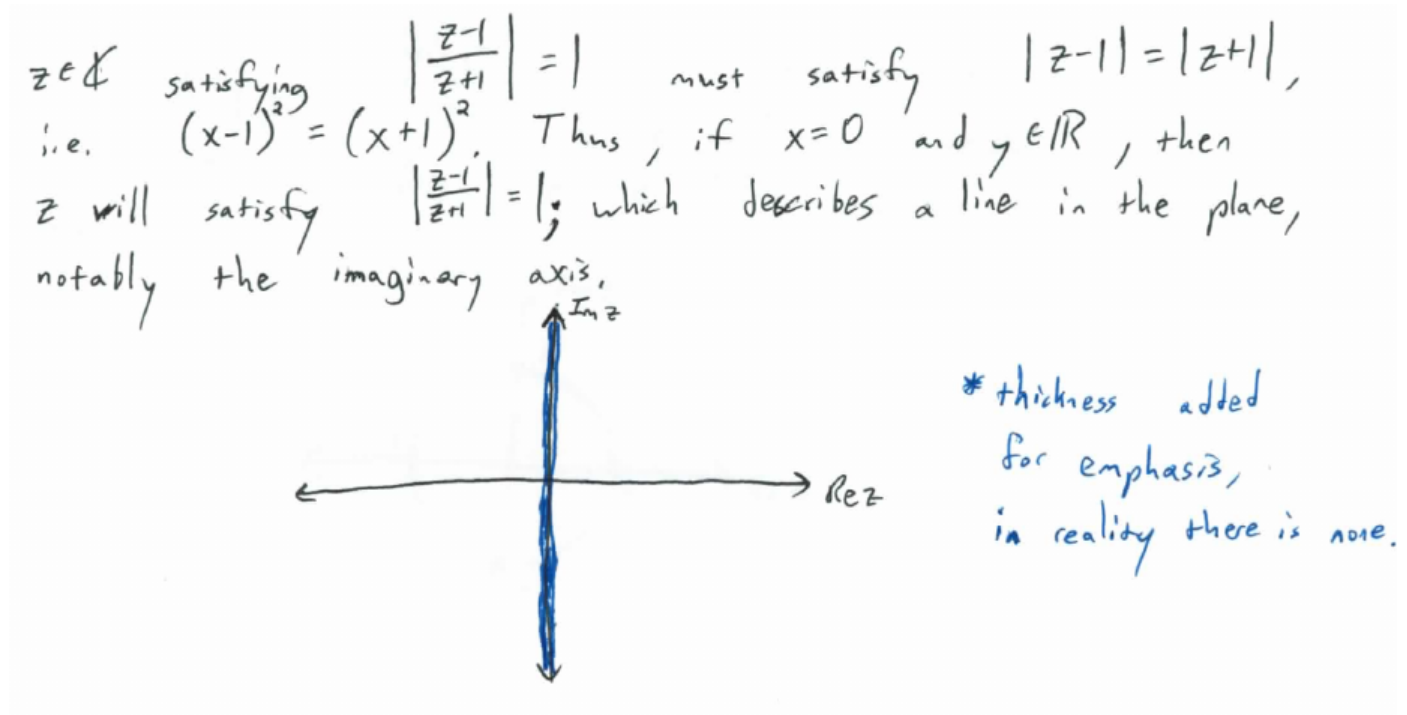 z ∈ ℂ satisfying |z-1/z+1| = 1 must satisfy |z-1| = |z+1|,
i.e. (x-1)² = (x+1)². Thus, if x=0 and y ∈ ℝ, then
z will satisfy |z-1/z+1| = 1; which describes a line in the plane,
notably the imaginary axis.
Im z
Re z
* thickness added
for emphasis,
in reality there is none.